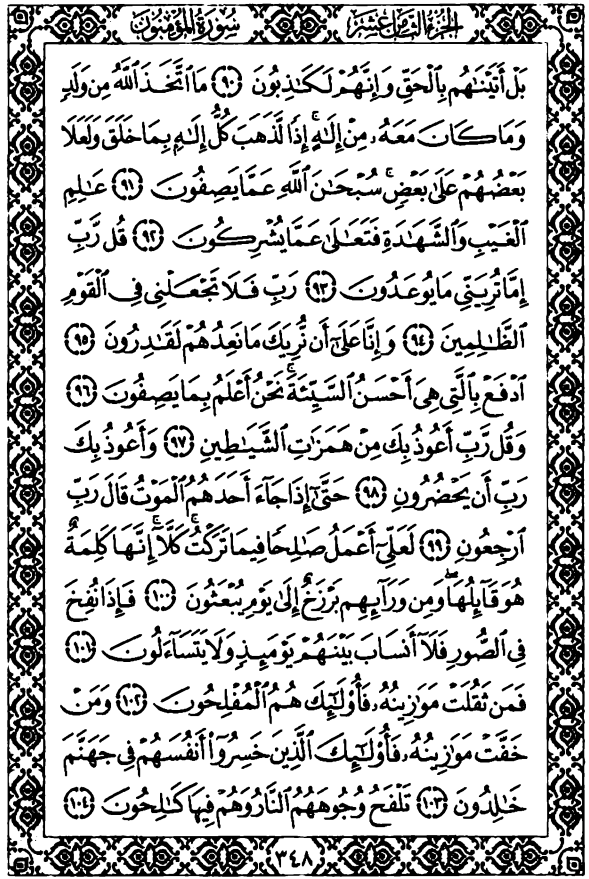 الجزء الثامن عشر سورة المؤمنون
بَلْ أَتَيْنَٰهُم بِٱلْحَقِّ وَإِنَّهُمْ لَكَٰذِبُونَ ٩٠ مَا ٱتَّخَذَ ٱللَّهُ مِن وَلَدٍ
وَمَا كَانَ مَعَهُۥ مِنْ إِلَٰهٍ ۚ إِذًا لَّذَهَبَ كُلُّ إِلَٰهٍۭ بِمَا خَلَقَ وَلَعَلَا
بَعْضُهُمْ عَلَىٰ بَعْضٍ ۚ سُبْحَٰنَ ٱللَّهِ عَمَّا يَصِفُونَ ٩١ عَٰلِمِ
ٱلْغَيْبِ وَٱلشَّهَٰدَةِ فَتَعَٰلَىٰ عَمَّا يُشْرِكُونَ ٩٢ قُل رَّبِّ
إِمَّا تُرِيَنِّى مَا يُوعَدُونَ ٩٣ رَبِّ فَلَا تَجْعَلْنِى فِى ٱلْقَوْمِ
ٱلظَّٰلِمِينَ ٩٤ وَإِنَّا عَلَىٰٓ أَن نُّرِيَكَ مَا نَعِدُهُمْ لَقَٰدِرُونَ ٩٥
ٱدْفَعْ بِٱلَّتِى هِىَ أَحْسَنُ ٱلسَّيِّئَةَ ۚ نَحْنُ أَعْلَمُ بِمَا يَصِفُونَ ٩٦
وَقُل رَّبِّ أَعُوذُ بِكَ مِنْ هَمَزَٰتِ ٱلشَّيَٰطِينِ ٩٧ وَأَعُوذُ بِكَ
رَبِّ أَن يَحْضُرُونِ ٩٨ حَتَّىٰٓ إِذَا جَآءَ أَحَدَهُمُ ٱلْمَوْتُ قَالَ رَبِّ
ٱرْجِعُونِ ٩٩ لَعَلِّىٓ أَعْمَلُ صَٰلِحًا فِيمَا تَرَكْتُ ۚ كَلَّآ ۚ إِنَّهَا كَلِمَةٌ
هُوَ قَآئِلُهَا ۖ وَمِن وَرَآئِهِم بَرْزَخٌ إِلَىٰ يَوْمِ يُبْعَثُونَ ١٠٠ فَإِذَا نُفِخَ
فِى ٱلصُّورِ فَلَآ أَنسَابَ بَيْنَهُمْ يَوْمَئِذٍ وَلَا يَتَسَآءَلُونَ ١٠١
فَمَن ثَقُلَتْ مَوَٰزِينُهُۥ فَأُو۟لَٰٓئِكَ هُمُ ٱلْمُفْلِحُونَ ١٠٢ وَمَنْ
خَفَّتْ مَوَٰزِينُهُۥ فَأُو۟لَٰٓئِكَ ٱلَّذِينَ خَسِرُوٓا۟ أَنفُسَهُمْ فِى جَهَنَّمَ
خَٰلِدُونَ ١٠٣ تَلْفَحُ وُجُوهَهُمُ ٱلنَّارُ وَهُمْ فِيهَا كَٰلِحُونَ ١٠٤
٣٤٨